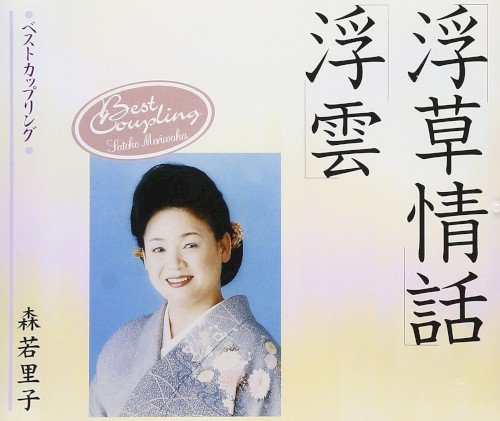 「浮草情話」
「浮雲」
Best
Coupling
Satoko Moriwaka
・ベストカップリング・
森若里子